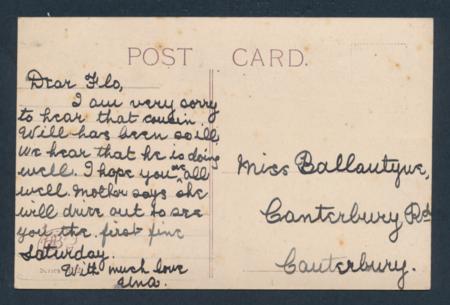 POST CARD.
Dear Flo,
I am very sorry
to hear that cousin
Will has been so ill,
we hear that he is doing
well. I hope you are all
well. Mother says she
will drive out to see
you the first fine
Saturday.
With much love
Una.
Miss Ballantyne,
Canterbury Rd
Canterbury.